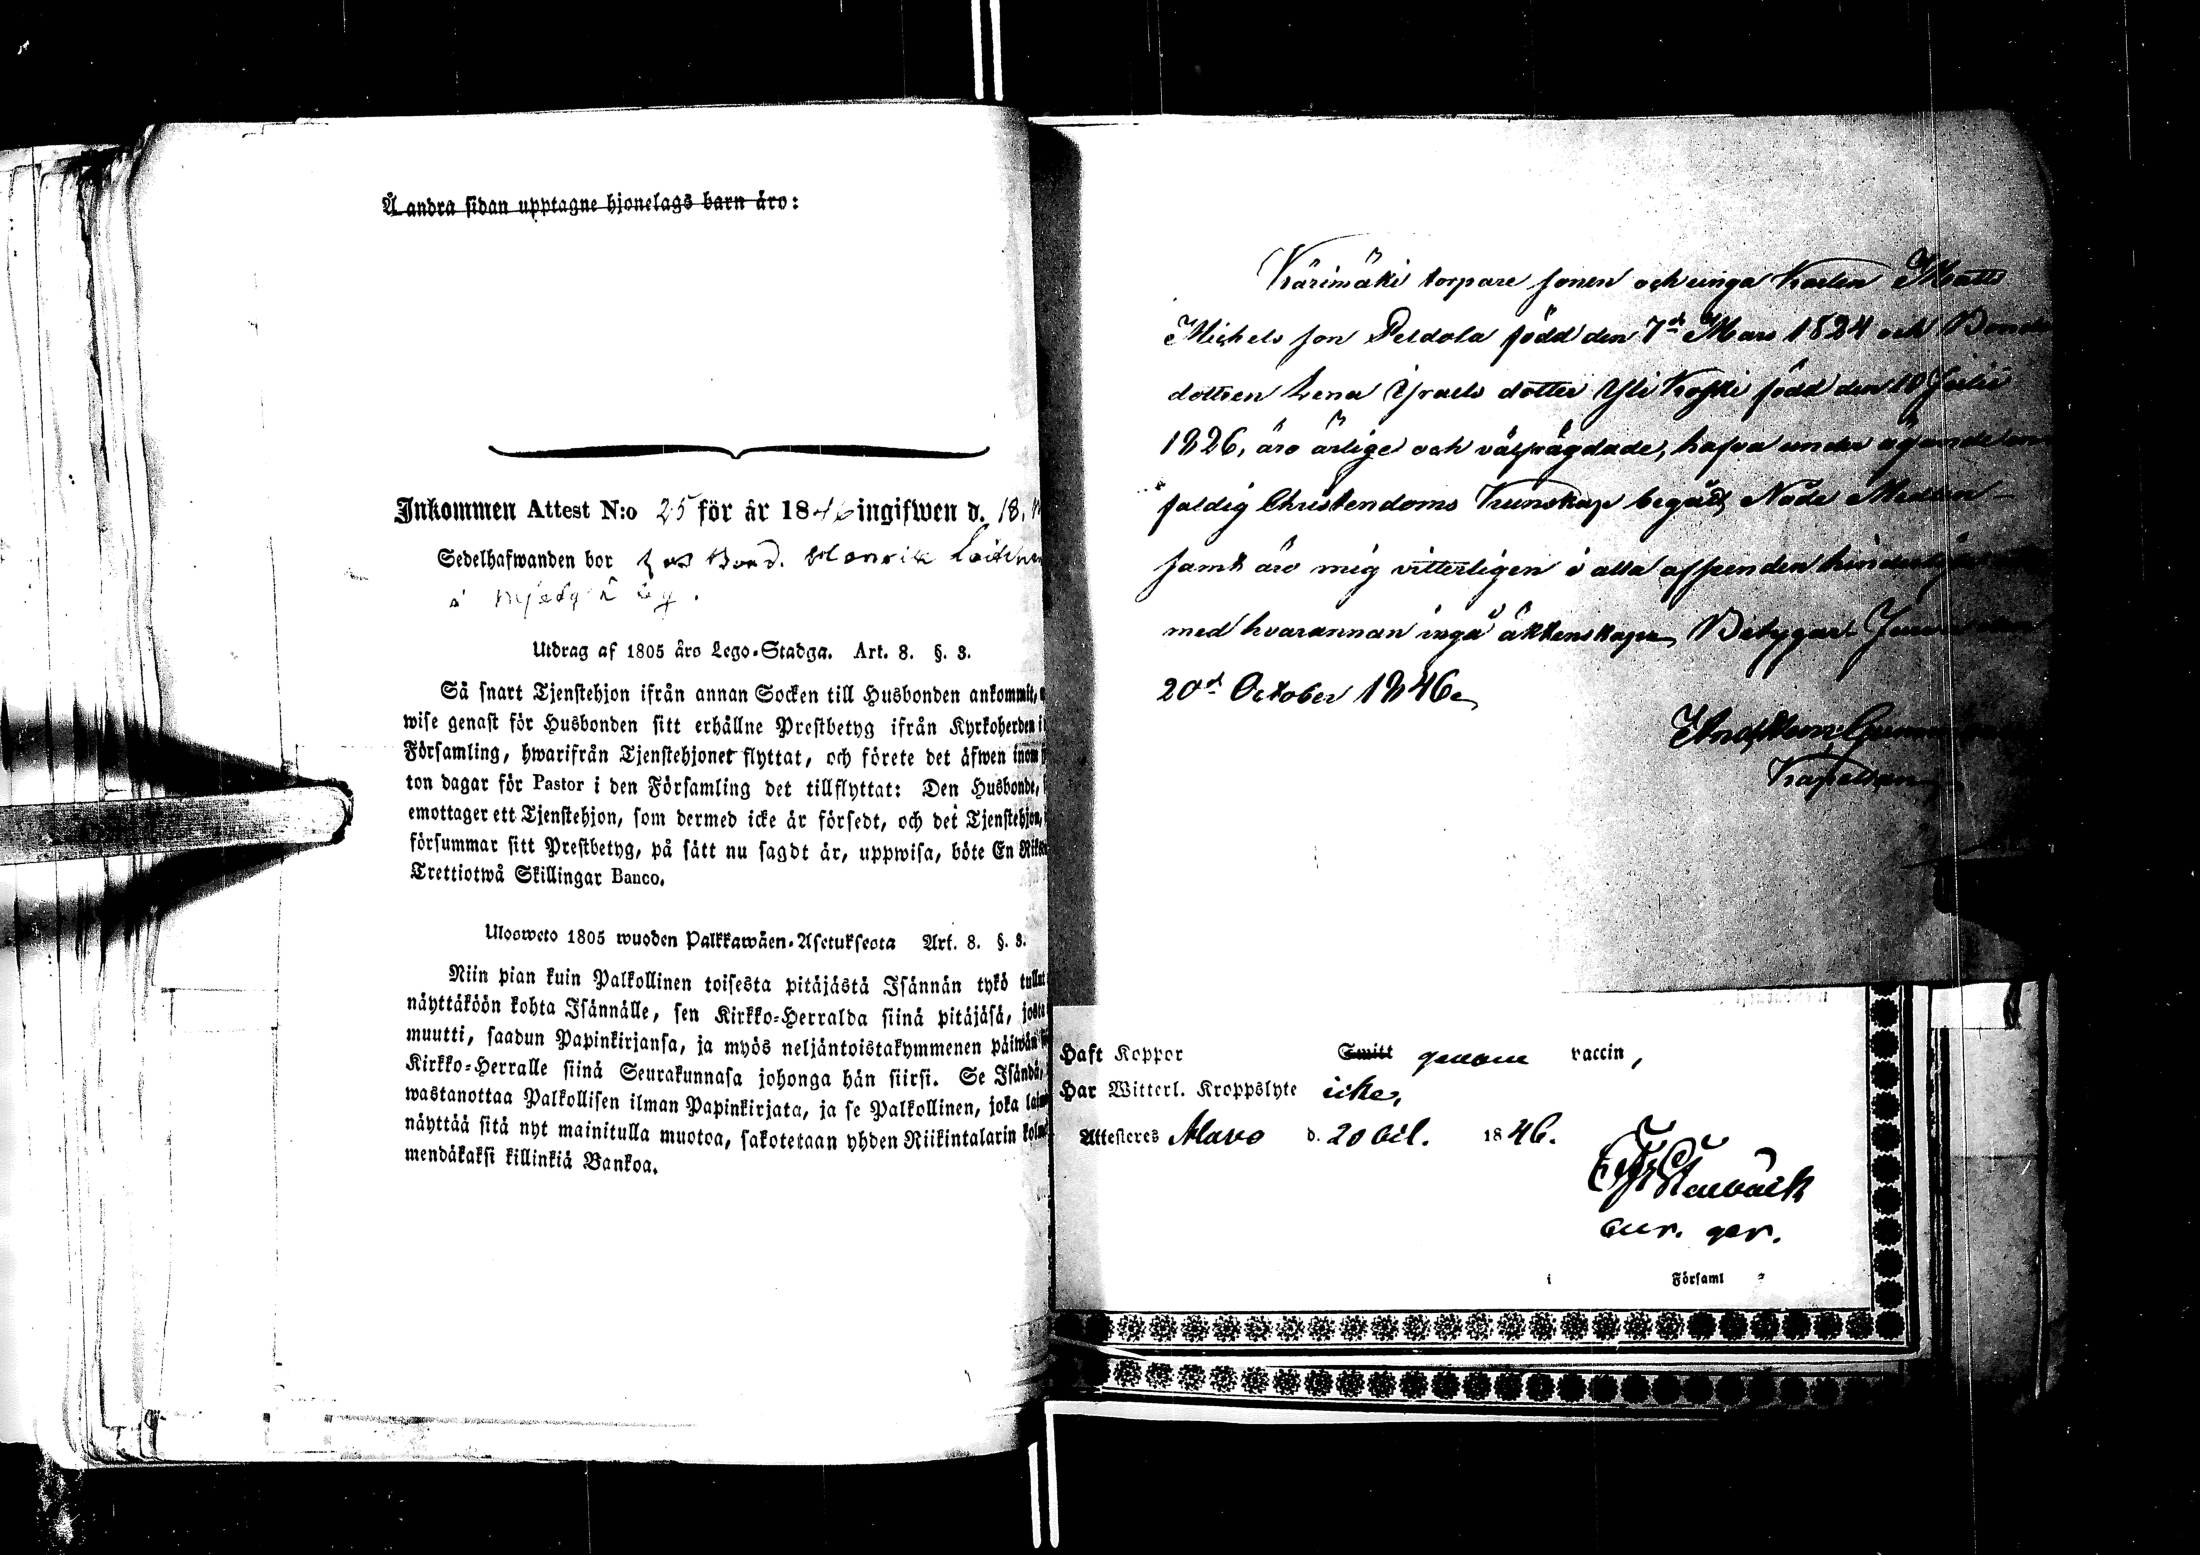 Å andra sidan upptagne hjonelags barn äro:
Inkommen Attest N:o 25 för år 1846 ingifwen d. 18.
Sedelhafwanden bor hos Bond. Henrik
å
Utdrag af 1805 års Lego-Stadga. Art. 8. §. 3.
Så snart Tjenstehjon ifrån annan Socken till Husbonden ankommit,
wise genast för Husbonden sitt erhållne Prestbetyg ifrån Kyrkoherden i
Församling, hwarifrån Tjenstehjonet flyttat, och förete det äfwen inom
ton dagar för Pastor i den Församling det tillflyttat: Den Husbonde,
emottager ett Tjenstehjon, som dermed icke är försedt, och det Tjenstehjon,
försummar sitt Prestbetyg, på sätt nu sagdt är, uppwisa, böte En
Trettiotwå Skillingar Banco.
Ulosweto 1805 wuoden Palkkawäen-Asetuksesta Art. 8. §. 3.
Niin pian kuin Palkollinen toisesta pitäjästä Isännän tykö tullut
näyttäköön kohta Isännälle, sen Kirkko-Herralda siinä pitäjäsä, josta
muutti, saadun Papinkirjansa, ja myös neljäntoistakymmenen päiwän
Kirkko-Herralle siinä Seurakunnasa johonga hän siirsi. Se Isändä,
wastanottaa Palkollisen ilman Papinkirjata, ja se Palkollinen, joka
näyttää sitä nyt mainitulla muotoa, sakotetaan yhden Riikintalarin
mendäkaksi killinkiä Bankoa.
Kärimäki torpare sonen och unga Karlen Matts
Michels son Peldola född den 7de Mars 1824 och Bonde
dottren Lena Israels dotter Yli Koski född den 10 Julii
1826, äro ärlige och välfrägdade, hafva under
faldig Christendoms Kunskap begått Nåde Medlen
samt äro mig vitterligen i alla
med hvarannan ingå äktenskap, Betygar
20de October 1846
Kapellan
Haft Koppor Smitt genom vaccin,
Har Witterl. Kroppslyte icke,
Attesteres Alavo d. 20 1846.
cur. ger.
i Församl